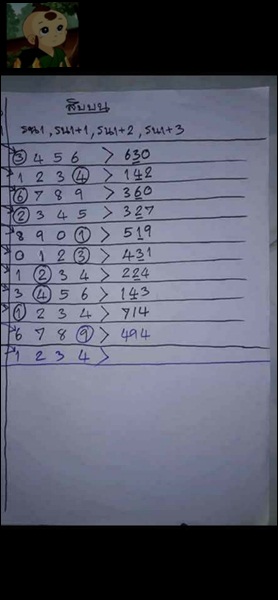 สิบบน
รน1, รน1+1, รน1+2, รน1+3
3 4 5 6 > 630
1 2 3 4 > 142
6 7 8 9 > 360
2 3 4 5 > 327
8 9 0 1 > 519
0 1 2 3 > 431
1 2 3 4 > 224
3 4 5 6 > 143
1 2 3 4 > 714
6 7 8 9 > 494
1 2 3 4 >